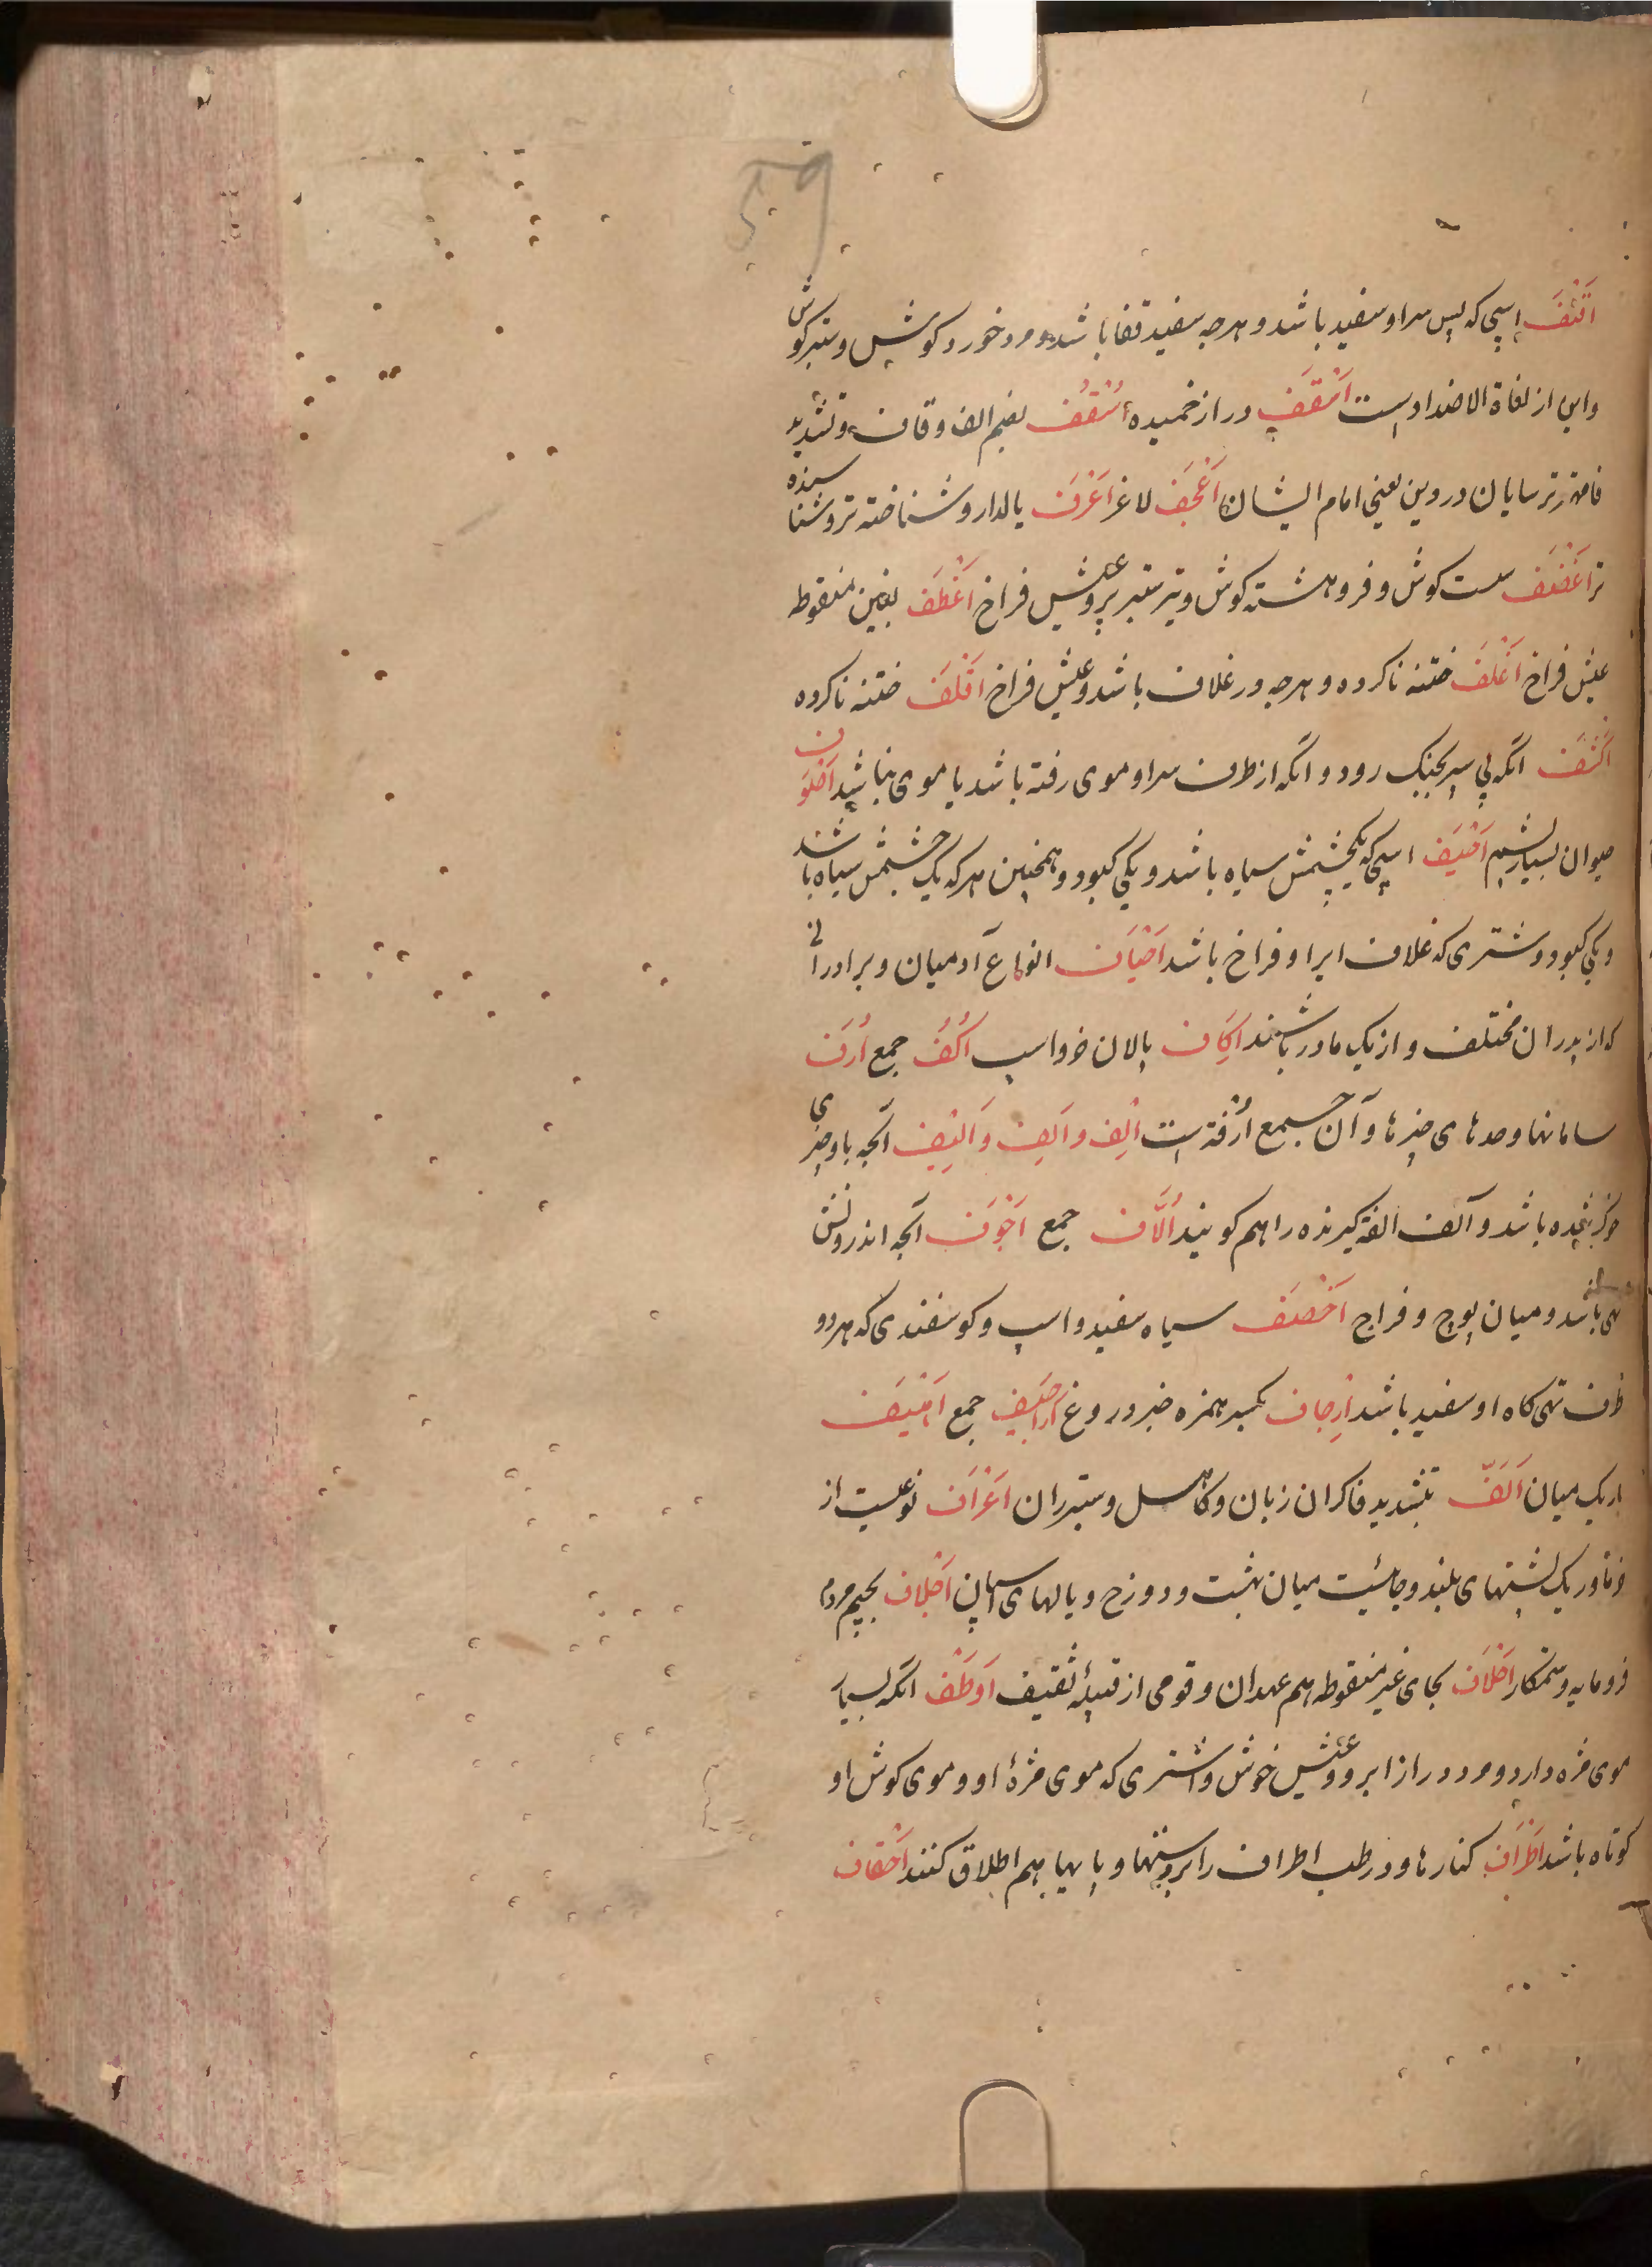 59
اَقْنَفْ اسپی که پس سر او سفید باشد و هرچه سفید قفا باشد و مرد خورد کوش و ستبر کوش
و این از لغاة الاضداد است اَسْقَفْ دراز خمیده اُسْقُفْ بضم الف و قاف و تشدید
فا مهتر ترسایان در دین یعنی امام ایشان اَعْجَفْ لاغر اَعْرَفْ یالدار و شناخته تر و شناسنده
تر اَغْضَفْ سست کوش و فروهشته کوش و تیر ستبر پر و عیش فراخ اَغْطَفْ بغین منقوطه
عیش فراخ اَغْلَفْ ختنه ناکرده و هرچه در غلاف باشد و عیش فراخ اَقْلَفْ ختنه ناکرده
اَکْشَفْ انکه بی سپر بجنک رود و انکه از طرف سر او موی رفته باشد یا موی نباشد اَصْوَف
حیوان بسیار پشم اَخْیَفْ اسپی که یکچشمش سیاه باشد و یکی کبود و همچنین هر که یک چشمش سیاه باشد
و یکی کبود و شتری که غلاف ایر او فراخ باشد اَخْیَاف انواع آدمیان و برادرانی
که از پدران مختلف و از یک مادر باشند اِکَاف پالان خر و اسپ اُکُفْ جمع اُرَف
سامانها و حدهای چیزها و آن جمع اُرْفَة است اِلْف و آلِف و اَلِیْف آنچه با و چیزی
خو کر شده باشد و آلف الفة کیرنده را هم کویند اُلَّاف جمع اَجْوَف آنچه اندرونش
تهی باشد و میان پوچ و فراخ اَخْصَفْ سیاه سفید و اسپ و کوسفندی که هر دو
طرف تهی کاه او سفید باشد اِرْجاف بکسر همزه خبر دروغ اَراجِیْف جمع اَهْیَف
باریک میان اَلَفّ بتشدید فا کران زبان و کاهل و ستبر ران اَعْرَاف نوعیست از
خرما و ریک پشتهای بلند و جائیست میان بهشت و دوزخ و یالهای اسپان اَجْلاف بجیم مردم
فرومایه و ستمکار اَحْلَاف بحای غیر منقوطه هم عهدان و قومی از قبیلۀ ثقیف اَوْطَفْ انکه بسیار
موی مژه دارد و مرد دراز ابرو و عیش خوش و اشتری که موی مژۀ او و موی کوش او
کوتاه باشد اَطْرَاف کنارها و در طب اطراف را بر دستها و پایها هم اطلاق کنند اَحْقاف